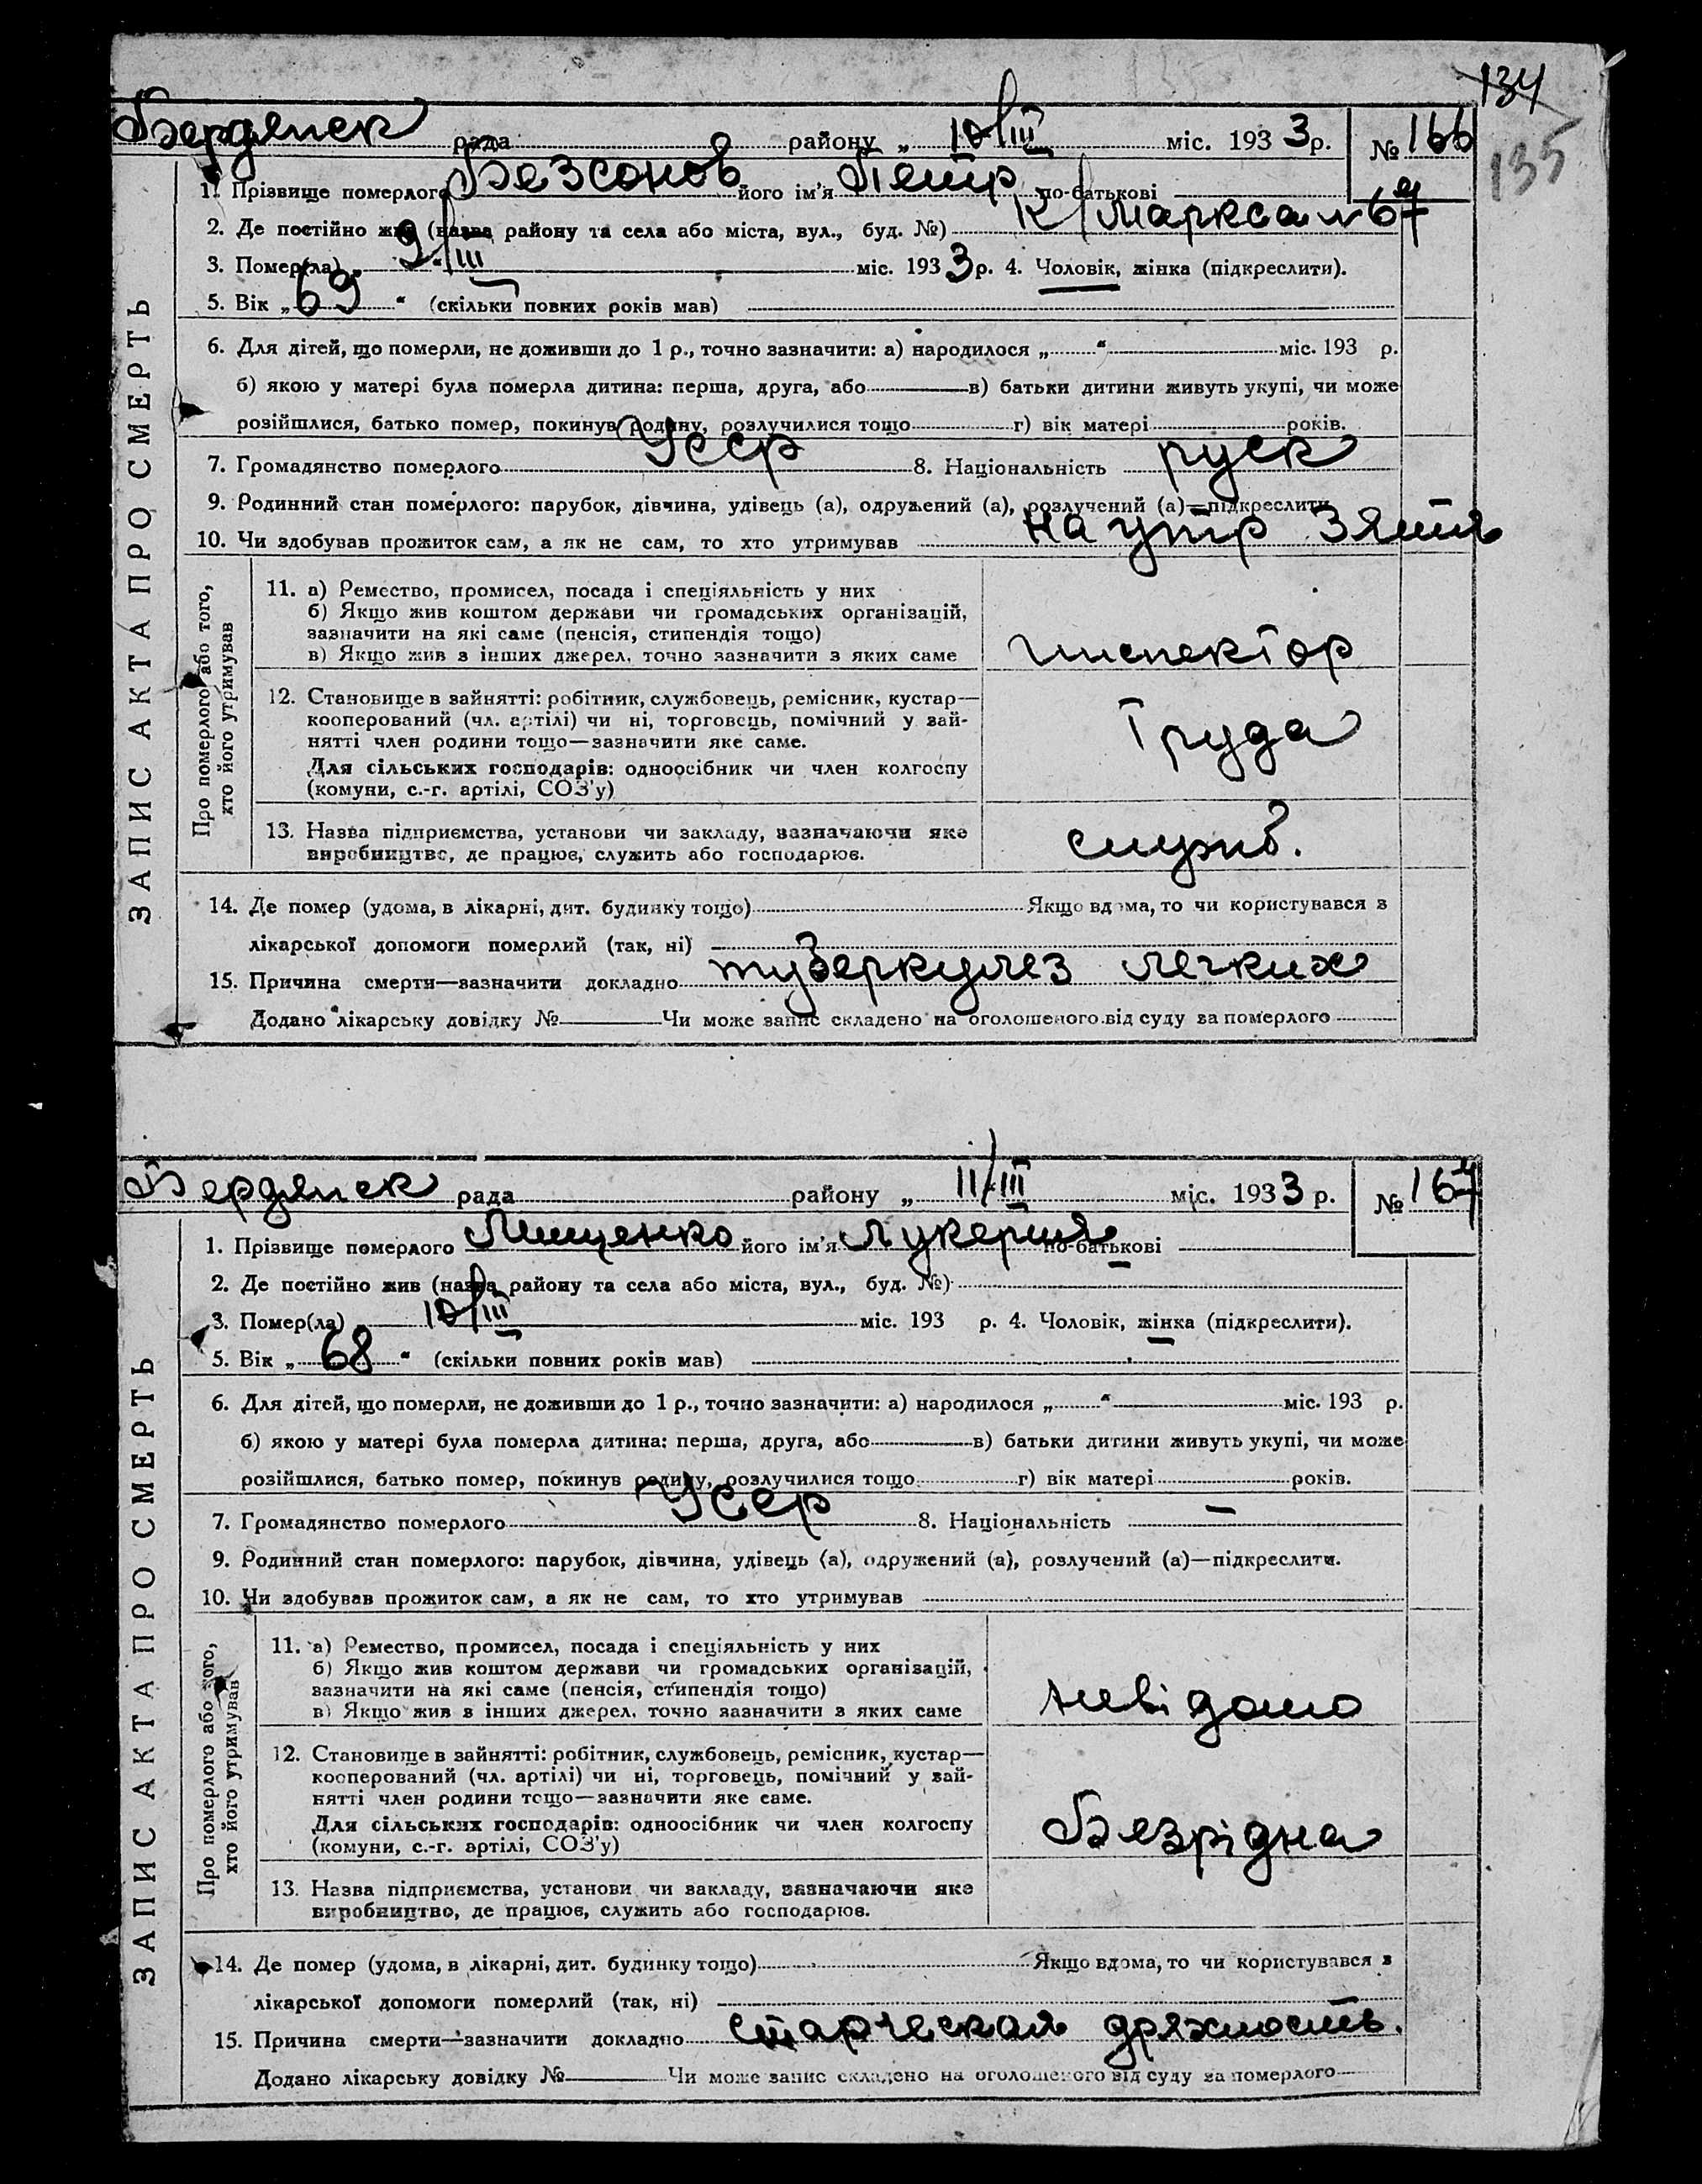 134
135
Бердянск рада району „ 10/III міс. 193 3 р. № 166
1. Прізвище померлого Безсонов його ім'я Петр по-батькові
2. Де постійно жив (назва району та села або міста, вул., буд. №) К/Маркса №
3. Помер(ла) „ 9/III " міс. 193 3 р. 4. Чоловік, жінка (підкреслити).
5. Вік „ 69 " (скільки повних років мав)
6. Для дітей, що померли, не доживши до 1 р., точно зазначити: а) народилося „ " міс. 193 р.
б) якою у матері була померла дитина: перша, друга, або в) батьки дитини живуть укупі, чи може
розійшлися, батько помер, покинув родину, розлучилися тощо г) вік матері років.
7. Громадянство померлого Усср 8. Національність руск
9. Родинний стан померлого: парубок, дівчина, удівець (а), одружений (а), розлучений (а)—підкреслити
10. Чи здобував прожиток сам, а як не сам, то хто утримував на утр зятя
ЗАПИС АКТА ПРО СМЕРТЬ
Про померлого або того,
хто його утримував
11. а) Ремество, промисел, посада і спеціяльність у них
б) Якщо жив коштом держави чи громадських організацій,
зазначити на які саме (пенсія, стипендія тощо)
в) Якщо жив з інших джерел, точно зазначити з яких саме
инспектор
12. Становище в зайнятті: робітник, службовець, ремісник, кустар—
кооперований (чл. артілі) чи ні, торговець, помічний у зай-
нятті член родини тощо—зазначити яке саме.
Для сільських господарів: одноосібник чи член колгоспу
(комуни, с.-г. артілі, СОЗ'у)
Труда
13. Назва підприємства, установи чи закладу, зазначаючи яке
виробництво, де працює, служить або господарює.
служб.
14. Де помер (удома, в лікарні, дит. будинку тощо) Якщо вдома, то чи користувався з
лікарської допомоги померлий (так, ні)
15. Причина смерти—зазначити докладно туберкулез легких
Додано лікарську довідку № Чи може запис складено на оголошеного від суду за померлого
Бердянск рада району „ 11/III міс. 193 3 р. № 167
1. Прізвище померлого Мищенко його ім'я Лукерия по-батькові —
2. Де постійно жив (назва району та села або міста, вул., буд. №)
3. Помер(ла) 10/III міс. 193 р. 4. Чоловік, жінка (підкреслити).
5. Вік „ 68 " (скільки повних років мав)
6. Для дітей, що померли, не доживши до 1 р., точно зазначити: а) народилося „ " міс. 193 р.
б) якою у матері була померла дитина: перша, друга, або в) батьки дитини живуть укупі, чи може
розійшлися, батько помер, покинув родину, розлучилися тощо г) вік матері років.
7. Громадянство померлого Усср 8. Національність —
9. Родинний стан померлого: парубок, дівчина, удівець (а), одружений (а), розлучений (а)—підкреслити.
10. Чи здобував прожиток сам, а як не сам, то хто утримував
ЗАПИС АКТА ПРО СМЕРТЬ
Про померлого або того,
хто його утримував
11. а) Ремество, промисел, посада і спеціяльність у них
б) Якщо жив коштом держави чи громадських організацій,
зазначити на які саме (пенсія, стипендія тощо)
в) Якщо жив з інших джерел, точно зазначити з яких саме
невідомо
12. Становище в зайнятті: робітник, службовець, ремісник, кустар—
кооперований (чл. артілі) чи ні, торговець, помічний у зай-
нятті член родини тощо—зазначити яке саме.
Для сільських господарів: одноосібник чи член колгоспу
(комуни, с.-г. артілі, СОЗ'у)
Безрідна
13. Назва підприємства, установи чи закладу, зазначаючи яке
виробництво, де працює, служить або господарює.
14. Де помер (удома, в лікарні, дит. будинку тощо) Якщо вдома, то чи користувався з
лікарської допомоги померлий (так, ні)
15. Причина смерти—зазначити докладно старческая дряхлость.
Додано лікарську довідку № Чи може запис складено на оголошеного від суду за померлого